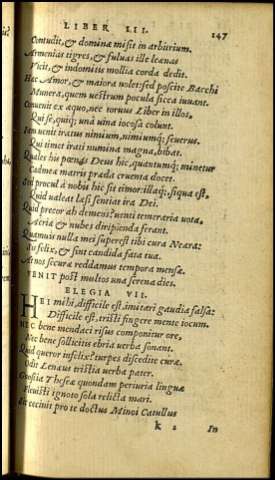 LIBER III. 147
Contudit, & dominæ misit in arbitrium.
Armenias tigres, & fuluas ille leænas
Vicit, & indomitis mollia corda dedit.
Hæc Amor, & maiora ualet; sed poscite Bacchi
Munera, quem uestrum pocula sicca iuuant.
Conuenit ex æquo, nec toruus Liber in illos,
Qui se, quiq; una uina iocosa colunt.
Iam uenit iratus nimium, nimiumq; seuerus.
Qui timet irati numina magna, bibat.
Quales his pœnas Deus hic, quantumq; minetur
Cadmeæ matris præda cruenta docet.
Sed procul à nobis hic sit timor: illaq;, siqua est,
Quid ualeat læsi sentiat ira Dei.
Quid precor ah demens? uenti temeraria uota,
Aeriæ & nubes diripienda ferant.
Quamuis nulla mei superest tibi cura Neæra:
Sis felix, & sint candida fata tua.
At nos securæ reddamus tempora mensæ.
VENIT post multos una serena dies.
ELEGIA VII.
HEI mihi, difficile est imitari gaudia falsa:
Difficile est, tristi fingere mente iocum.
NEC bene mendaci risus componitur ore,
Nec bene sollicitis ebria uerba sonant.
Quid queror infelix? turpes discedite curæ.
Odit Lenæus tristia uerba pater.
Gnosia Theseæ quondam periuria linguæ
Fleuisti ignoto sola relicta mari.
Sic cecinit pro te doctus Minoi Catullus
k 2 In